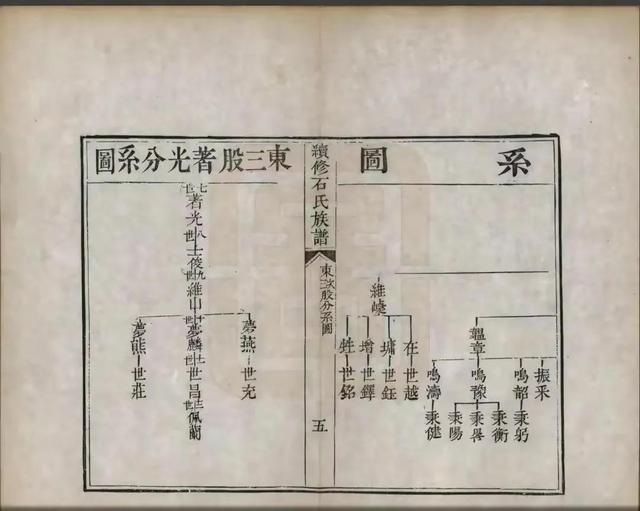 系圖
龜章
振采
鳴韶 秉躬
鳴豫 秉衡 秉畧 秉陽
鳴濤 秉健
維嶢
在 世越
墉 世鈺
增 世鐸
甡 世銘
續修石氏族譜
東三次股分系圖
五
東三股著光分系圖
七世 著光
八世 士俊
九世 維山
十世 夢麟
十一世 世昌
十二世 佩蘭
夢燕 世充
夢熊 世莊